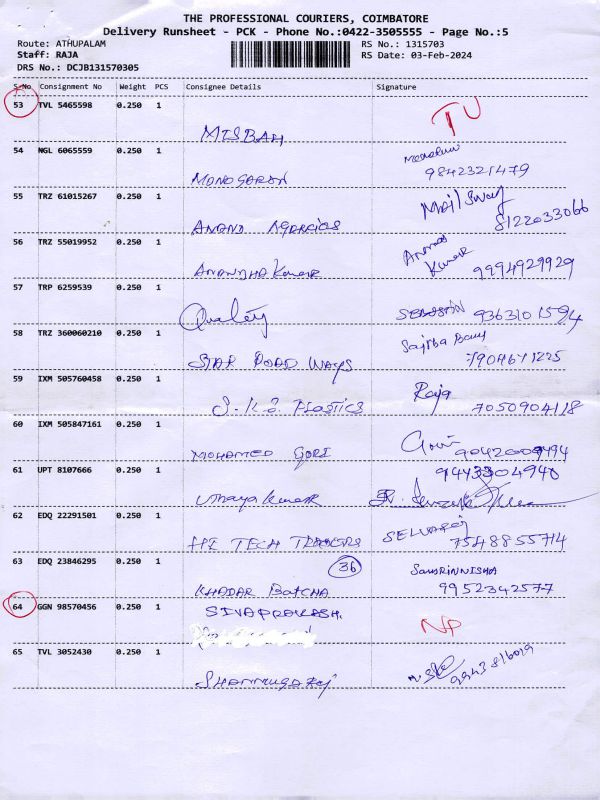 THE PROFESSIONAL COURIERS, COIMBATORE
Delivery Runsheet - PCK - Phone No.:0422-3505555 - Page No.:5
Route: ATHUPALAM RS No.: 1315703
Staff: RAJA RS Date: 03-Feb-2024
DRS No.: DCJB131570305
S-No Consignment No Weight PCS Consignee Details Signature
53 TVL 5465598 0.250 1 TU
MISBAH
54 NGL 6065559 0.250 1
MANOGARAN 9842321479
55 TRZ 61015267 0.250 1 Mail Sway
ANAND AGENCIES 8122033066
56 TRZ 55019952 0.250 1 Anand
ANANDHA Kumar Kumar 9994929929
57 TRP 6259539 0.250 1
Quality 9363101594
58 TRZ 360060210 0.250 1 Sajitha Banu
STAR ROAD WAYS 7904671225
59 IXM 505760458 0.250 1 Raja
S.K.S. PLASTICS 7050904118
60 IXM 505847161 0.250 1 Gowri
MOHAMED GORI 9042009494
61 UPT 8107666 0.250 1 9443304940
Umaya Kumar
62 EDQ 22291501 0.250 1 SELVARAJ
HI TECH TRADERS 7548855714
63 EDQ 23846295 0.250 1 36
KHADAR BATCHA 9952342577
64 GGN 98570456 0.250 1 SIVAPRAKASH. NP
65 TVL 3052430 0.250 1 9943816019
SHANMUGARAJ